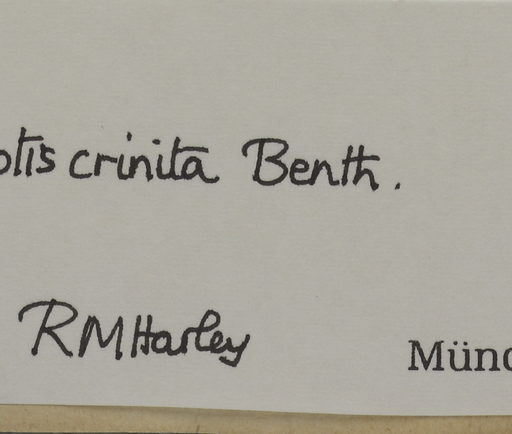 otis crinita Benth.
RMHarley
Münc